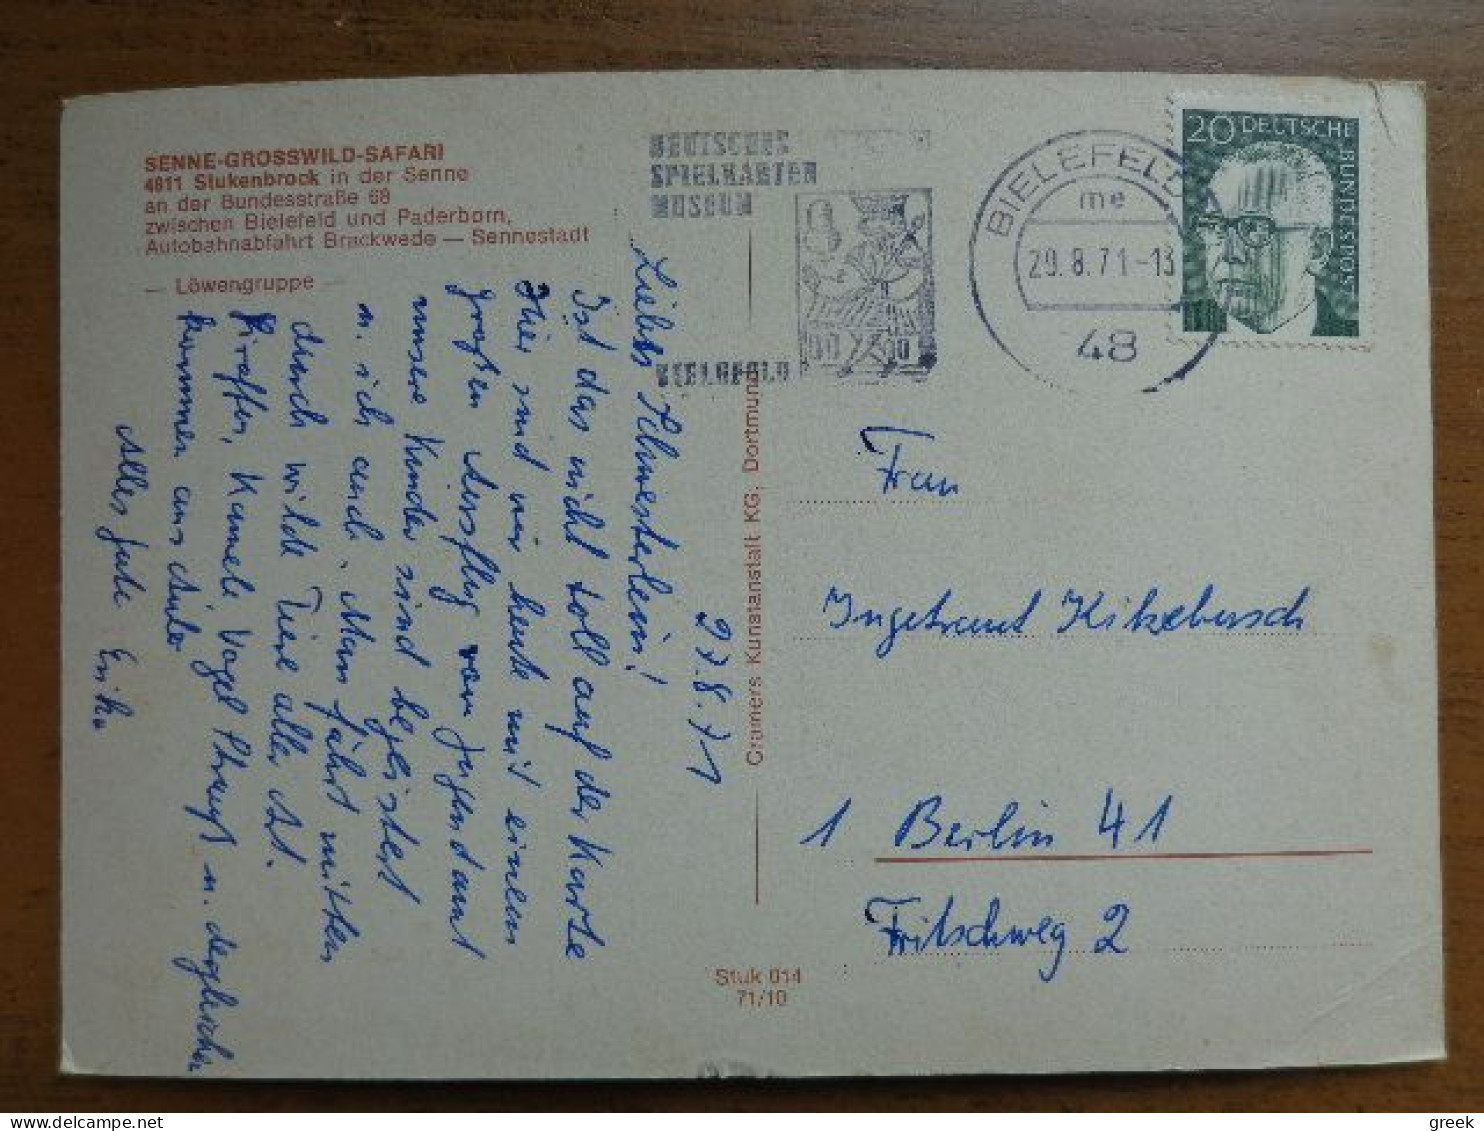 SENNE-GROSSWILD-SAFARI
4811 Stukenbrock in der Senne
an der Bundesstraße 68
zwischen Bielefeld und Paderborn,
Autobahnabfahrt Brackwede — Sennestadt
— Löwengruppe —
27.8.71
Liebes Schwesterlein!
Ist das nicht toll auf der Karte
Hier sind wir heute mit einem
großen Ausflug vom Jugendamt
unsere Kinder sind begeistert
u. ich auch. Man fährt mitten
durch wilde Tiere aller Art.
Giraffen, Kamele Vogel Strauß u. dergleichen
kommen ans Auto
Alles Gute Erika
Cramers Kunstanstalt KG, Dortmund
Stuk 014
71/10
DEUTSCHES
SPIELKARTEN
MUSEUM
BIELEFELD
BIELEFELD
me
29.8.71-13
48
20 DEUTSCHE BUNDESPOST
Frau
Ingetraut Kitzebusch
1 Berlin 41
Fritschweg 2
greek